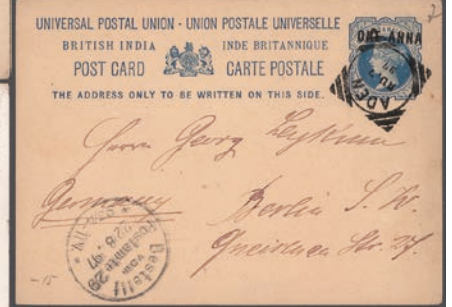 UNIVERSAL POSTAL UNION · UNION POSTALE UNIVERSELLE
BRITISH INDIA INDE BRITANNIQUE
POST CARD CARTE POSTALE
THE ADDRESS ONLY TO BE WRITTEN ON THIS SIDE.
ONE ANNA
ADEN
Herrn Georg
Germany Berlin S. W.
Gneisenau Str. 27.
Bestellt
vom
Postamte 29
22/8 97
-15